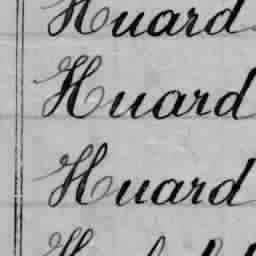 Huard
Huard
Huard